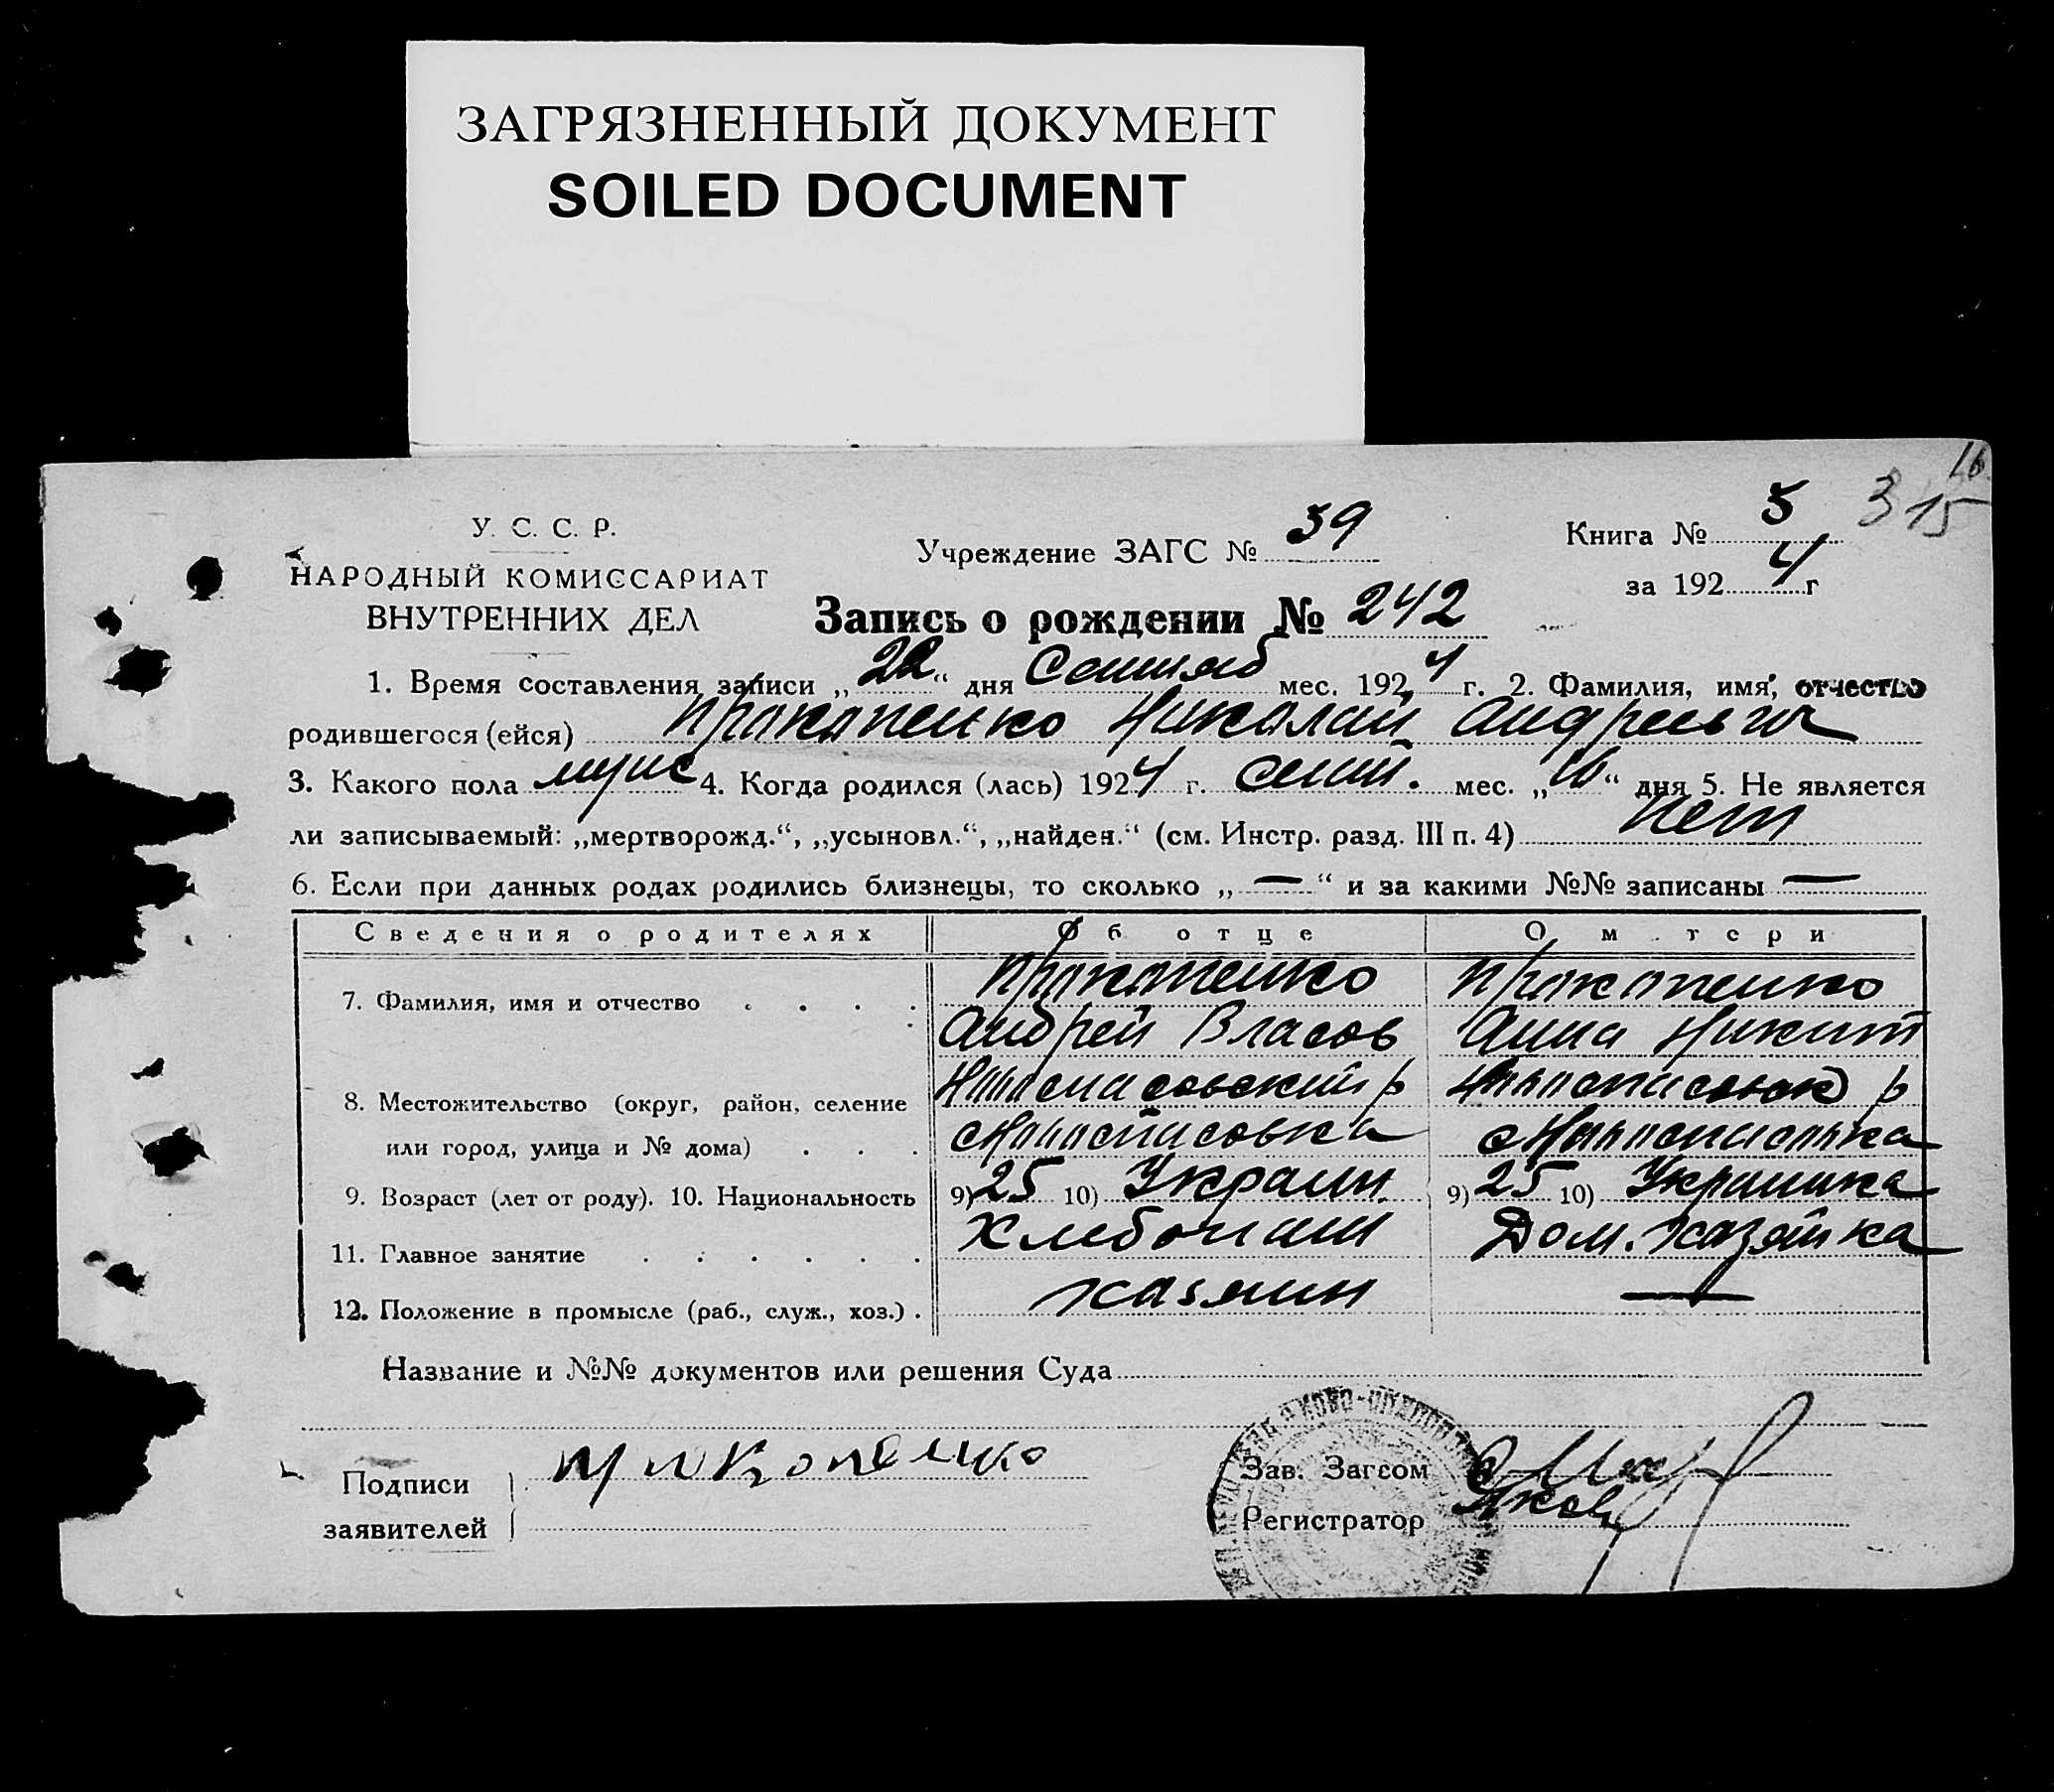 ЗАГРЯЗНЕННЫЙ ДОКУМЕНТ
SOILED DOCUMENT
16
3 15
У. С. С. Р.
НАРОДНЫЙ КОМИССАРИАТ
ВНУТРЕННИХ ДЕЛ
Учреждение ЗАГС № 39
Книга № 5
за 1924 г
Запись о рождении № 242
1. Время составления записи „22“ дня Сентяб мес. 1924 г. 2. Фамилия, имя, отчество
родившегося (ейся) Прокопенко Николай Андреевич
3. Какого пола муж 4. Когда родился (лась) 1924 г. сент. мес. „16“ дня 5. Не является
ли записываемый: „мертворожд.“, „усыновл.“, „найден.“ (см. Инстр. разд. III п. 4) нет
6. Если при данных родах родились близнецы, то сколько „—“ и за какими №№ записаны —
Сведения о родителях Об отце О м тери
7. Фамилия, имя и отчество Прокопенко Прокопенко
Андрей Власов Анна Никит
8. Местожительство (округ, район, селение
или город, улица и № дома)
9. Возраст (лет от роду). 10. Национальность 9) 25 10) Украин. 9) 25 10) Украинка
11. Главное занятие Хлебопаш Дом. хазяйка
12. Положение в промысле (раб., служ., хоз.) хазяин —
Название и №№ документов или решения Суда
Подписи
заявителей
Прокопенко
Зав. Загсом
Регистратор